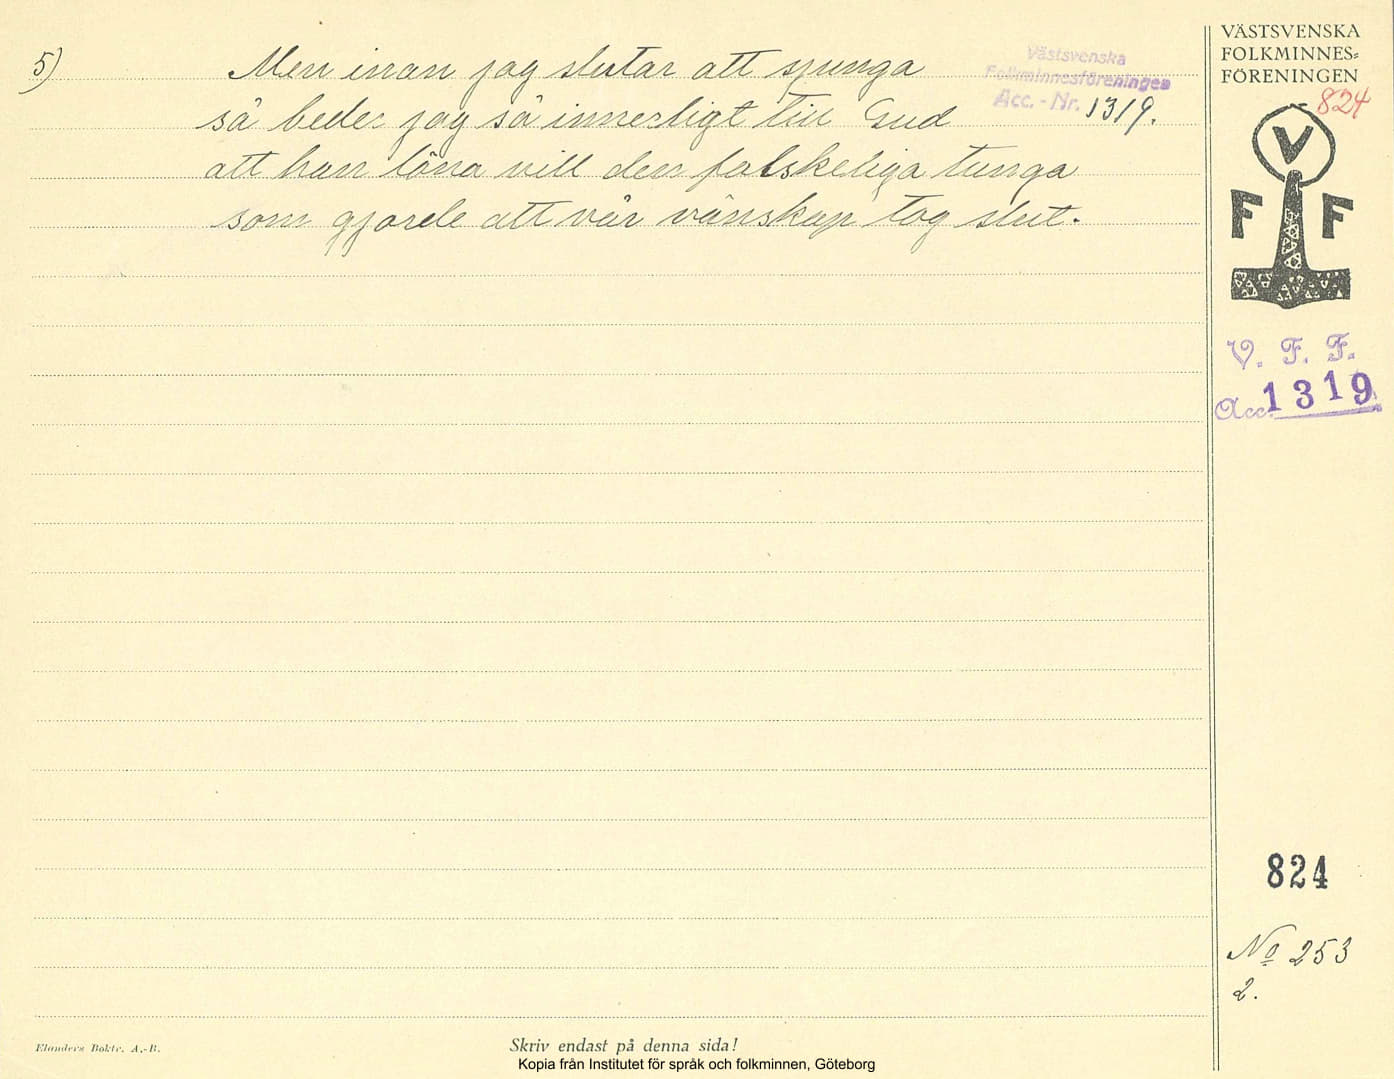 5) Men inan jag slutar att sjunga
så beder jag så innerligt till Gud
att han löna vill den falskeliga tunga
som gjorde att vår vänskap tog slut.
Västsvenska
Folkminnesföreningen
Acc.-Nr. 1319.
VÄSTSVENSKA
FOLKMINNES=
FÖRENINGEN
824
V
F F
V. F. F.
Acc. 1319
824
No 253
2.
Elanders Boktr. A.-B.
Skriv endast på denna sida!
Kopia från Institutet för språk och folkminnen, Göteborg